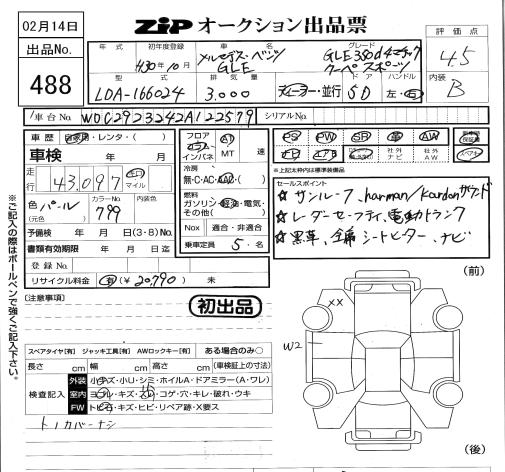 02月14日
出品No.
488
ZIP オークション出品票
評価点
4.5
内装
B
年式
初年度登録
H30年10月
車名
メルセデス・ベンツ
GLE
グレード
GLE350d4マチック
クーペ スポーツ
型式
LDA-166024
排気量
3,000
ディーラー・並行
ドア
5D
ハンドル
左・右
車台No.
WDC2923242A122579
シリアルNo.
車歴
自家用・レンタ・( )
車検
年 月
走行
43,097
キロ
マイル
色
(元色)
パール
カラーNo.
799
内装色
予備検 年 月 日(3・8)No.
書類有効期限 年 月 日迄
登録No.
リサイクル料金 有(¥20,790) 未
フロア
コラム
インパネ
AT
MT
速
冷房
無・C・AC・AAC
燃料
ガソリン・軽油・電気・
その他( )
Nox
適合・非適合
乗車定員
5名
PS
PW
SR
革
AW
TV
エアB
社外
ナビ
社外
AW
スペアタイヤ
※上記太枠内は標準装備品
セールスポイント
☆ サンルーフ、harman/kardonサウンド
☆ レーダーセーフティ、電動トランク
☆ 黒革、全席シートヒーター、ナビ
※ご記入の際はボールペンで強くご記入下さい。
[注意事項]
初出品
スペアタイヤ[有] ジャッキ工具[有] AWロックキー[有] ある場合のみ○
長さ cm 幅 cm 高さ cm (車検証上の寸法)
検査記入
外装 小キズ・小U・シミ・ホイルA・ドアミラー(A・ワレ)
室内 ヨゴレ・キズ・シミ・コゲ・穴・キレ・破れ・ウキ
FW トビ石・キズ・ヒビ・リペア跡・X要ス
トノカバーナシ
(前)
XX
W2
(後)